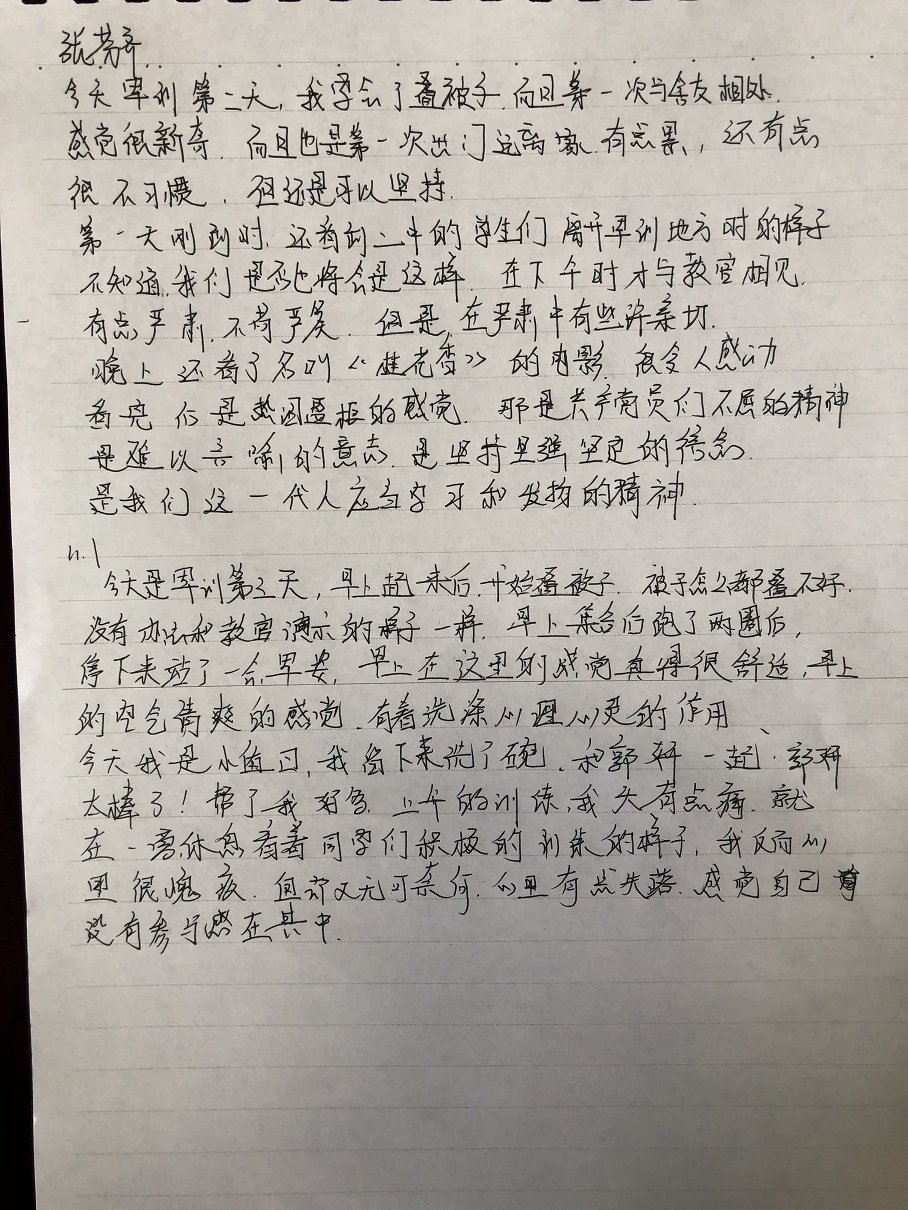 张芳齐
今天军训第二天,我学会了叠被子.而且第一次与舍友相处.
感觉很新奇.而且也是第一次出门远离家.有点累,还有点
很不习惯.但还是可以坚持.
第一天刚到时.还看到二中的学生们离开军训地方时的样子
不知道,我们是否也将会是这样.在下午时才与教官相见.
有点严肃,不苟严笑.但是,在严肃中有些许亲切.
晚上还看了名叫《桂花香》的电影.很令人感动
看完们是热泪盈框的感觉.那是共产党员们不屈的精神
是难以言喻的意志.是坚持坚强坚定的信念.
是我们这一代人应当学习和发扬的精神.
11.1
今天是军训第三天,早上起来后,开始叠被子.被子怎么都叠不好.
没有办法和教官演示的样子一样.早上集合后跑了两圈后,
停下来站了一会军姿,早上在这里的感觉真得很舒适,早上
的空气清爽的感觉.有着洗涤心理心灵的作用
今天我是小值日,我留下来洗了碗.和郭妍一起.郭妍
太棒了!帮了我好多.上午的训练,我头有点痛.就
在一旁休息看着同学们积极的训练的样子,我反而心
里很愧疚.但却又无可奈何.心里有点失落.感觉自己
没有参与感在其中.